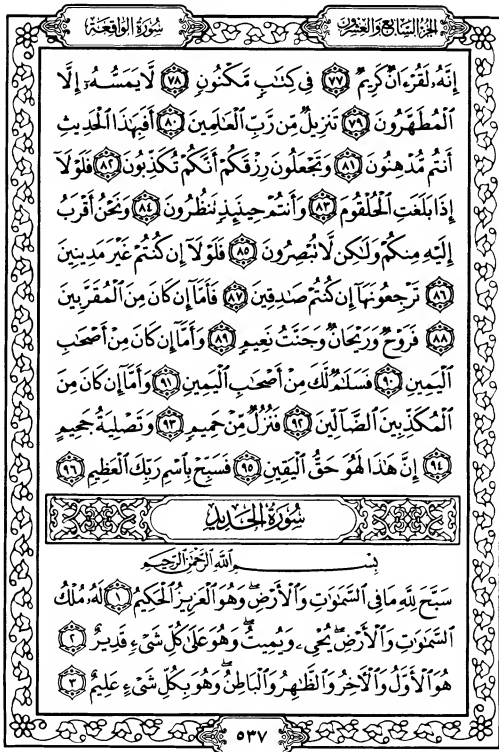 الجزء السابع والعشرون
سورة الواقعة
إِنَّهُۥ لَقُرْءَانٌ كَرِيمٌ ٧٧ فِى كِتَٰبٍ مَّكْنُونٍ ٧٨ لَّا يَمَسُّهُۥٓ إِلَّا
ٱلْمُطَهَّرُونَ ٧٩ تَنزِيلٌ مِّن رَّبِّ ٱلْعَٰلَمِينَ ٨٠ أَفَبِهَٰذَا ٱلْحَدِيثِ
أَنتُم مُّدْهِنُونَ ٨١ وَتَجْعَلُونَ رِزْقَكُمْ أَنَّكُمْ تُكَذِّبُونَ ٨٢ فَلَوْلَآ
إِذَا بَلَغَتِ ٱلْحُلْقُومَ ٨٣ وَأَنتُمْ حِينَئِذٍ تَنظُرُونَ ٨٤ وَنَحْنُ أَقْرَبُ
إِلَيْهِ مِنكُمْ وَلَٰكِن لَّا تُبْصِرُونَ ٨٥ فَلَوْلَآ إِن كُنتُمْ غَيْرَ مَدِينِينَ
٨٦ تَرْجِعُونَهَآ إِن كُنتُمْ صَٰدِقِينَ ٨٧ فَأَمَّآ إِن كَانَ مِنَ ٱلْمُقَرَّبِينَ
٨٨ فَرَوْحٌ وَرَيْحَانٌ وَجَنَّتُ نَعِيمٍ ٨٩ وَأَمَّآ إِن كَانَ مِنْ أَصْحَٰبِ
ٱلْيَمِينِ ٩٠ فَسَلَٰمٌ لَّكَ مِنْ أَصْحَٰبِ ٱلْيَمِينِ ٩١ وَأَمَّآ إِن كَانَ مِنَ
ٱلْمُكَذِّبِينَ ٱلضَّآلِّينَ ٩٢ فَنُزُلٌ مِّنْ حَمِيمٍ ٩٣ وَتَصْلِيَةُ جَحِيمٍ
٩٤ إِنَّ هَٰذَا لَهُوَ حَقُّ ٱلْيَقِينِ ٩٥ فَسَبِّحْ بِٱسْمِ رَبِّكَ ٱلْعَظِيمِ ٩٦
سورة الحديد
بِسْمِ ٱللَّهِ ٱلرَّحْمَٰنِ ٱلرَّحِيمِ
سَبَّحَ لِلَّهِ مَا فِى ٱلسَّمَٰوَٰتِ وَٱلْأَرْضِ ۖ وَهُوَ ٱلْعَزِيزُ ٱلْحَكِيمُ ١ لَهُۥ مُلْكُ
ٱلسَّمَٰوَٰتِ وَٱلْأَرْضِ ۖ يُحْىِۦ وَيُمِيتُ ۖ وَهُوَ عَلَىٰ كُلِّ شَىْءٍ قَدِيرٌ ٢
هُوَ ٱلْأَوَّلُ وَٱلْـَٔاخِرُ وَٱلظَّٰهِرُ وَٱلْبَاطِنُ ۖ وَهُوَ بِكُلِّ شَىْءٍ عَلِيمٌ ٣
٥٣٧